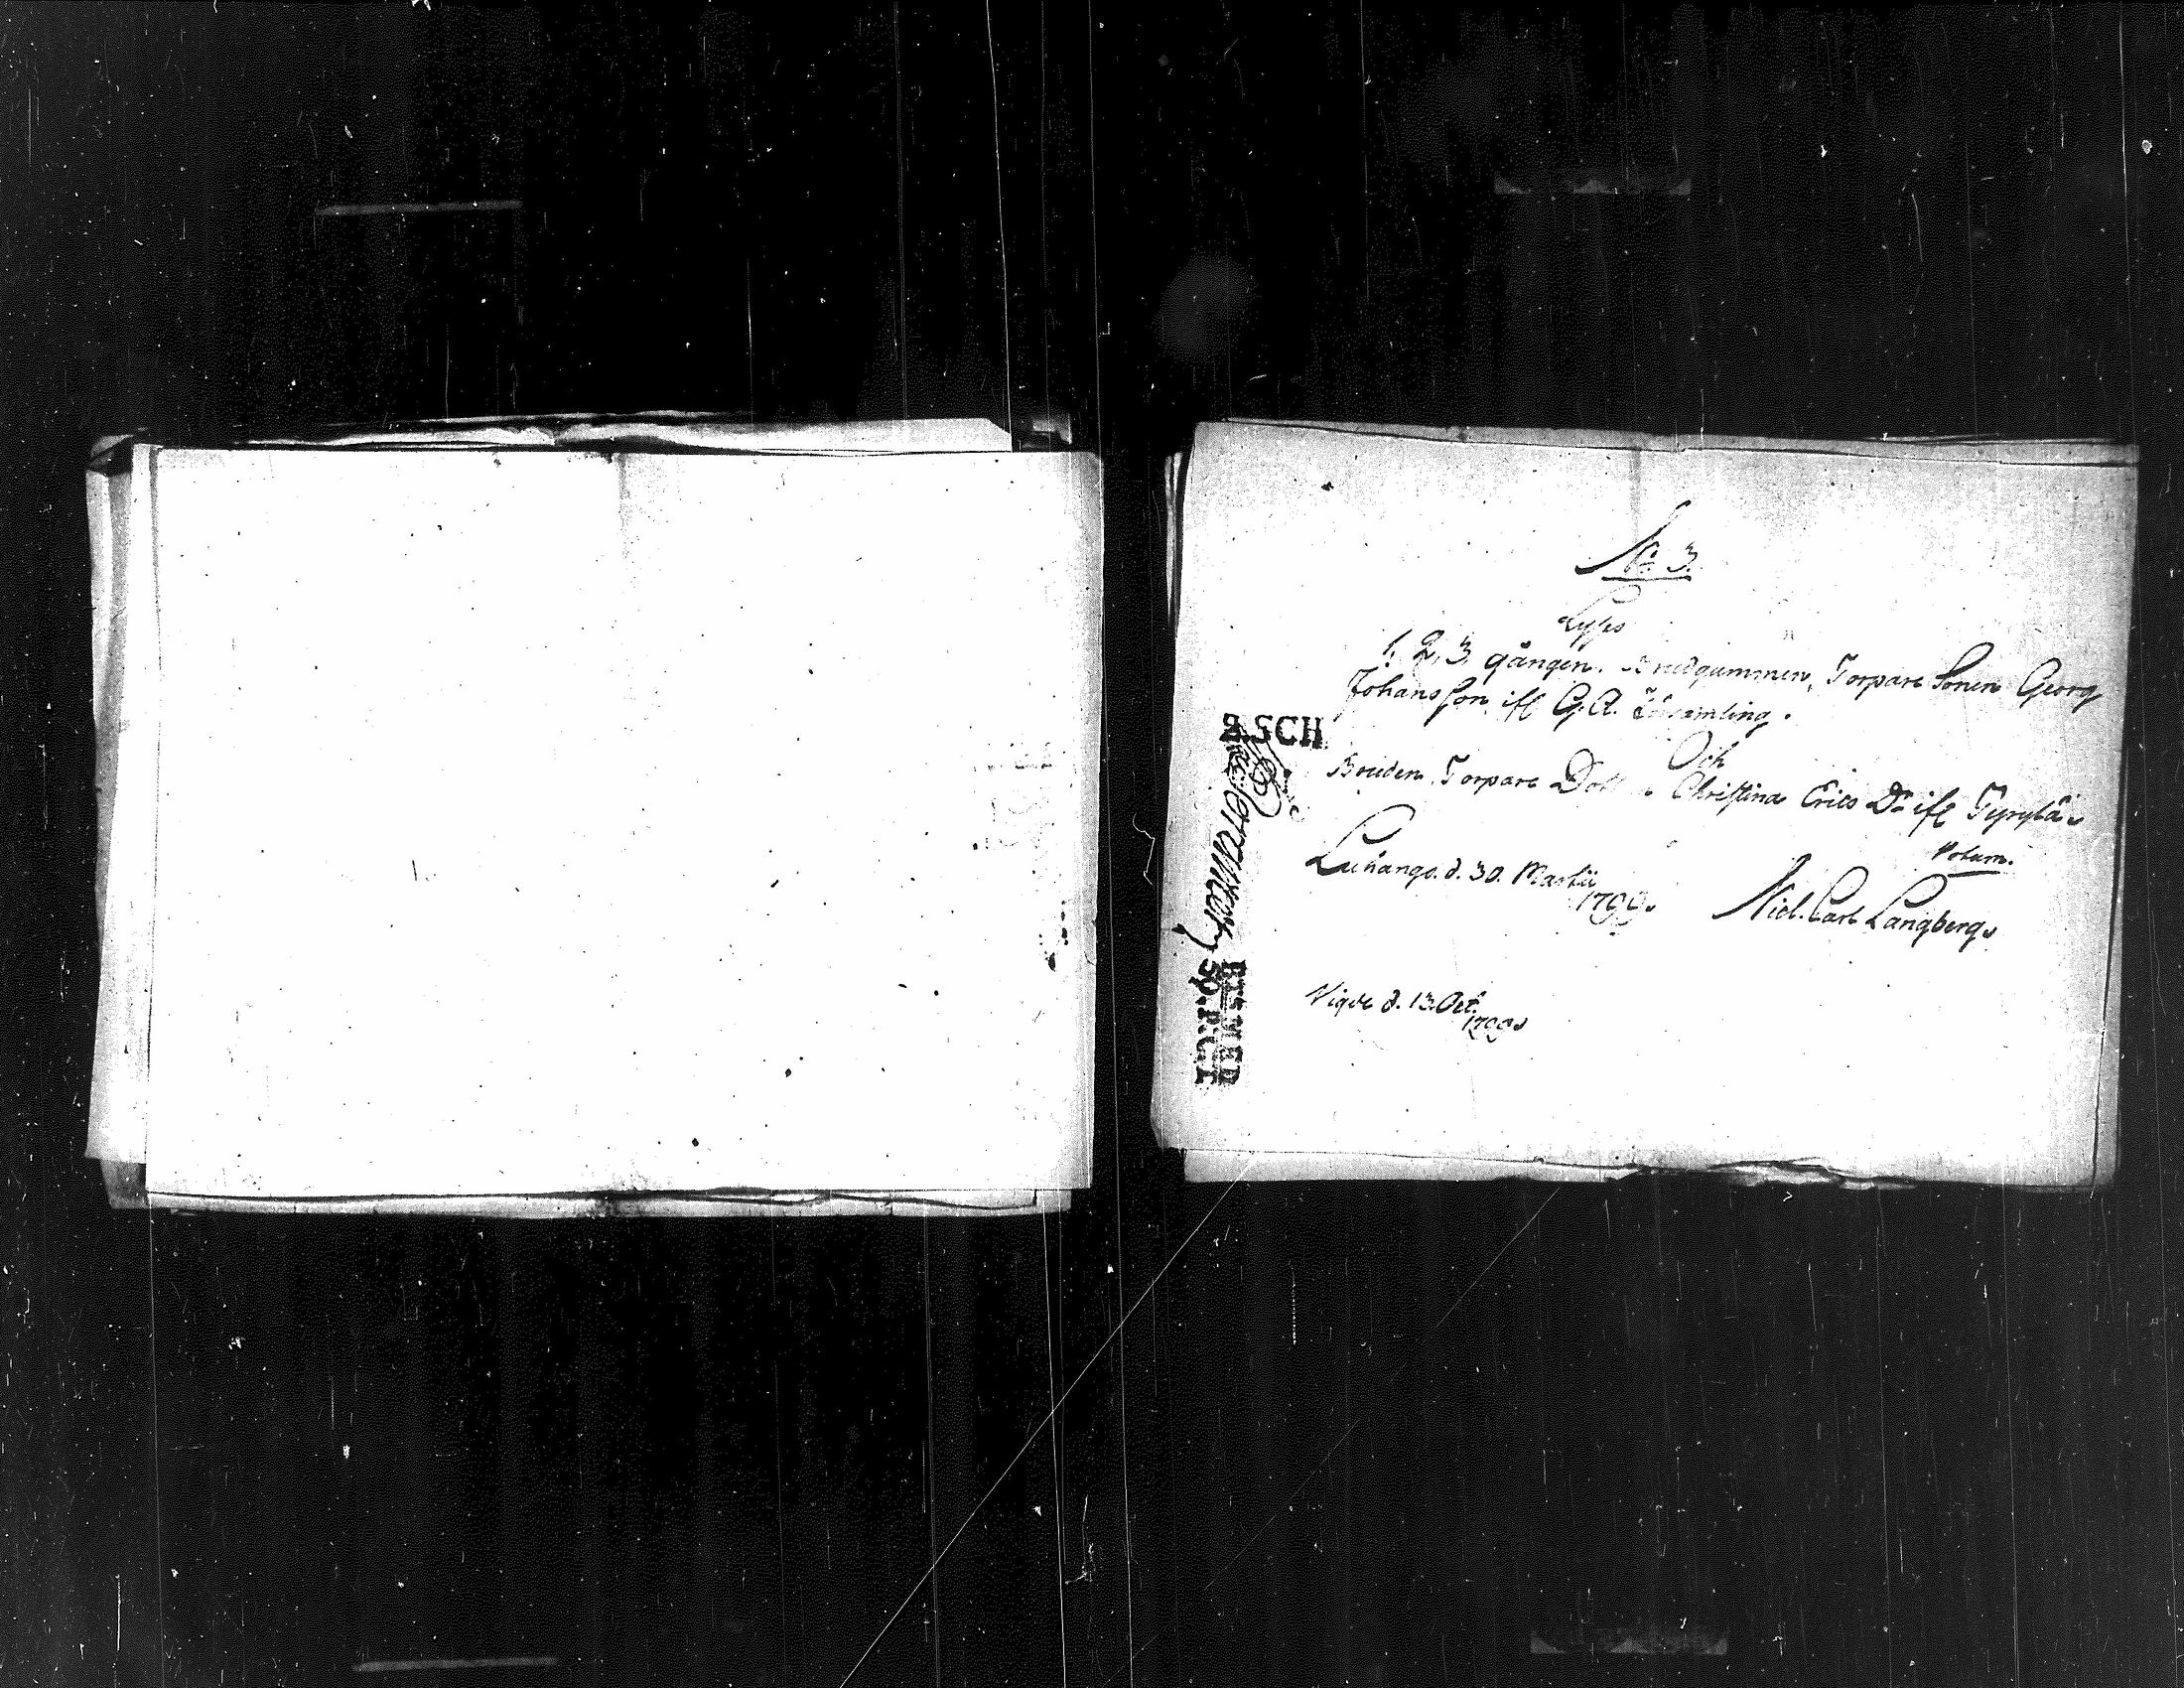 No 3.
Lyses
1. 2, 3, gången. Brudgummen, Torpare Sonen Georg
Johansson ifl G. A. Församling.
Och
Bruden, Torpare Christina Erics Dr ifl
Luhango. d. 30. Martii
1799.
Nicl. Carl Langberg.
Vigde d. 13. Oct.
1799.
2.SCH